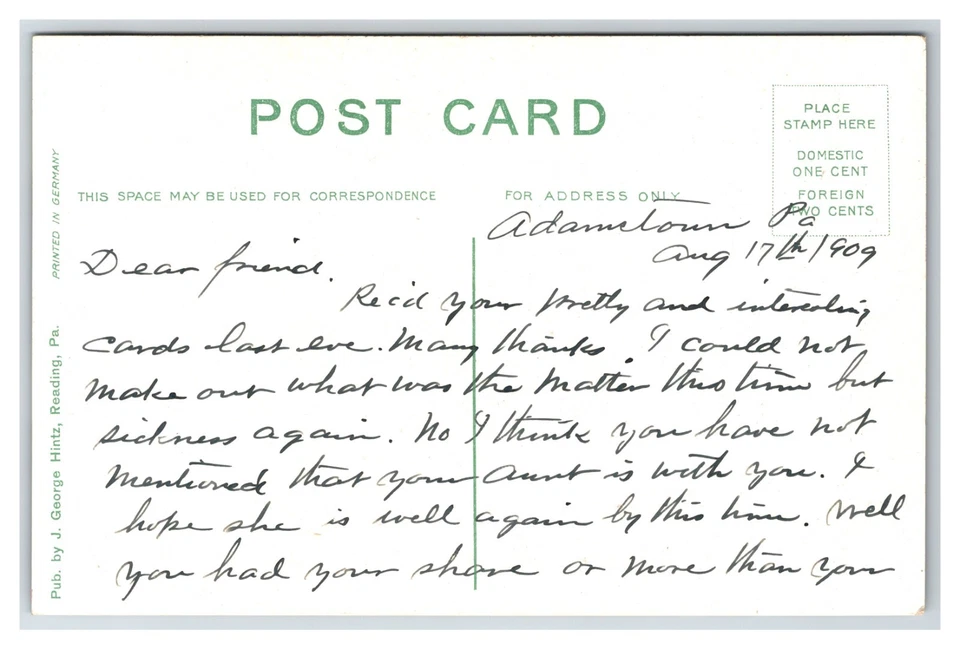 POST CARD
PLACE
STAMP HERE
DOMESTIC
ONE CENT
FOREIGN
TWO CENTS
THIS SPACE MAY BE USED FOR CORRESPONDENCE
FOR ADDRESS ONLY
PRINTED IN GERMANY
Pub. by J. George Hintz, Reading, Pa.
Adamstown Pa
Aug 17th 1909
Dear friend.
Rec'd your pretty and interesting
cards last eve. Many thanks. I could not
make out what was the matter this time but
sickness again. No I think you have not
mentioned that your aunt is with you. I
hope she is well again by this time. Well
you had your share or more than your